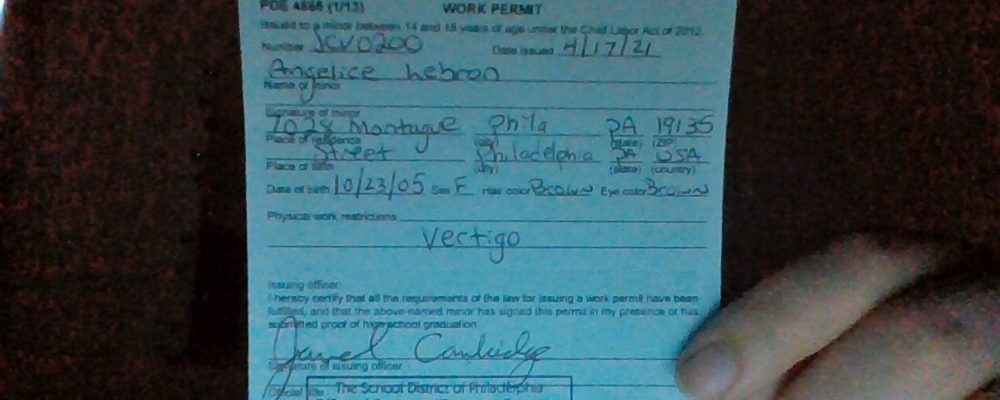 PDE 4566 (1/13) WORK PERMIT
Issued to a minor between 14 and 18 years of age under the Child Labor Act of 2012.
Number JCV0200 Date issued 4/17/21
Angelice Lebron
Name of minor
Signature of minor
7028 Montague Phila PA 19135
Place of residence (city) (state) (ZIP)
Street Philadelphia PA USA
Place of birth (city) (state) (country)
Date of birth 10/23/05 Sex F Hair color Brown Eye color Brown
Physical work restrictions
Vertigo
Issuing officer:
I hereby certify that all the requirements of the law for issuing a work permit have been
fulfilled, and that the above-named minor has signed this permit in my presence or has
submitted proof of high school graduation
Signature of issuing officer
Official title The School District of Philadelphia